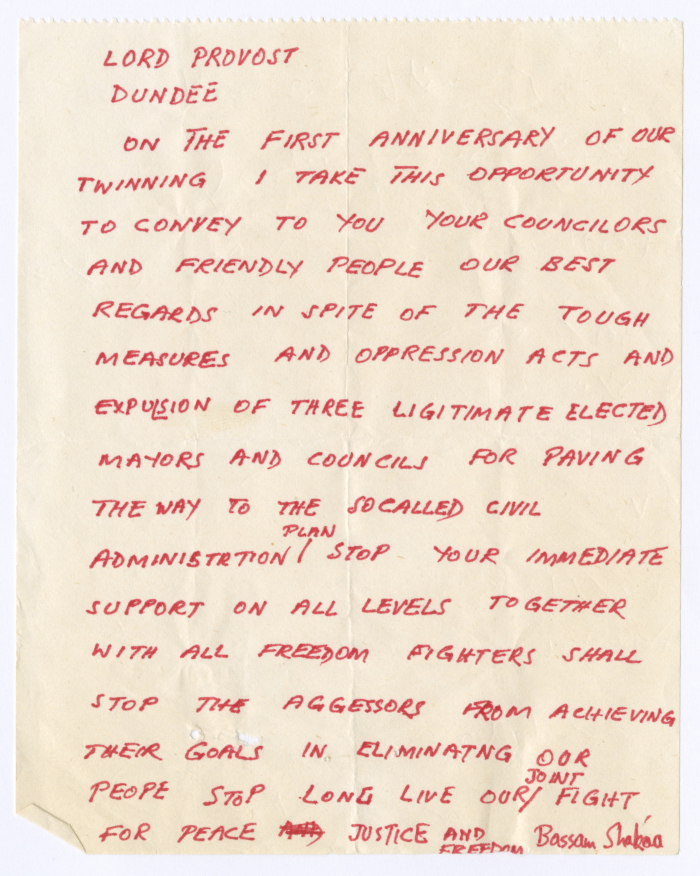 LORD PROVOST
DUNDEE
ON THE FIRST ANNIVERSARY OF OUR
TWINNING I TAKE THIS OPPORTUNITY
TO CONVEY TO YOU YOUR COUNCILORS
AND FRIENDLY PEOPLE OUR BEST
REGARDS IN SPITE OF THE TOUGH
MEASURES AND OPPRESSION ACTS AND
EXPULSION OF THREE LIGITIMATE ELECTED
MAYORS AND COUNCILS FOR PAVING
THE WAY TO THE SOCALLED CIVIL
PLAN
ADMINISTRTION / STOP YOUR IMMEDIATE
SUPPORT ON ALL LEVELS TOGETHER
WITH ALL FREEDOM FIGHTERS SHALL
STOP THE AGGESSORS FROM ACHIEVING
THEIR GOALS IN ELIMINATNG OUR
JOINT
PEOPE STOP LONG LIVE OUR / FIGHT
FOR PEACE AND JUSTICE AND Bassam Shakaa
FREEDOM